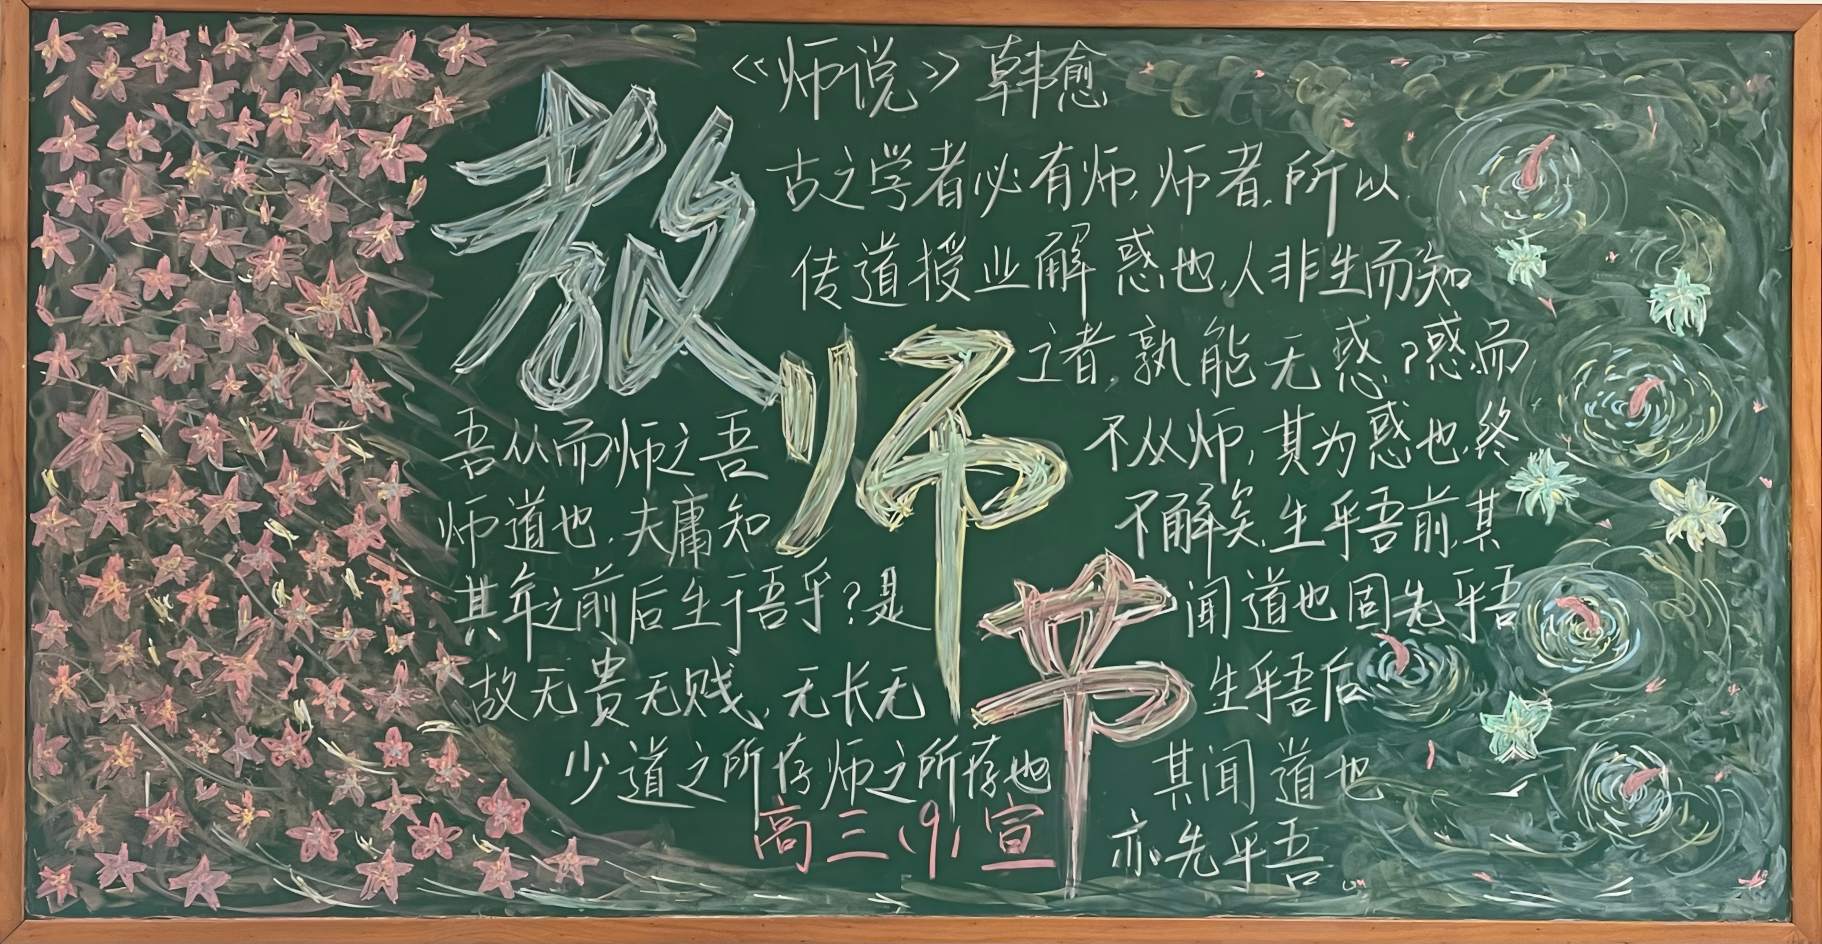 《师说》韩愈
教师节
古之学者必有师,师者,所以
传道授业解惑也,人非生而知
之者,孰能无惑?惑而
不从师,其为惑也,终
不解矣,生乎吾前,其
闻道也固先乎吾
生乎吾后
其闻道也
亦先乎吾
吾从而师之吾
师道也,夫庸知
其年之前后生于吾乎?是
故无贵无贱,无长无
少道之所存师之所存也
高三(9)宣